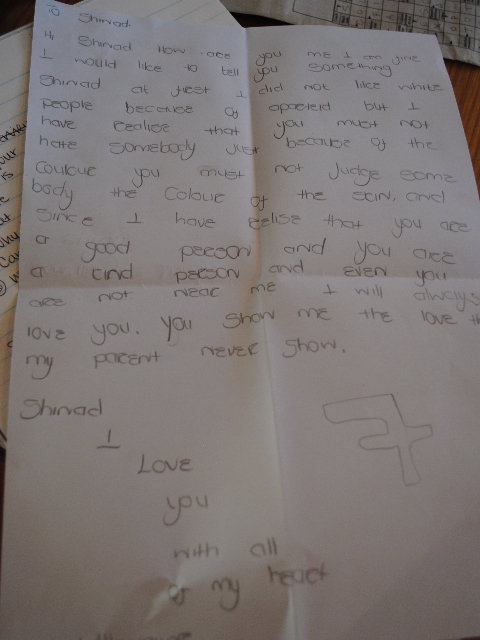 To Shinad
Hi Shinad How are you me I am fine
I would like to tell you something
Shinad at first I did not like white
people because of aparteid but I
have realise that you must not
hate somebody just because of the
Coulour you must not Judge some
body the Colour of the skin, and
Since I have relise that you are
a good person and you are
a kind person and even you
are not near me I will always
love you. You show me the love th
my parent never show.
Shinad
I
Love
you
with all
of my heart